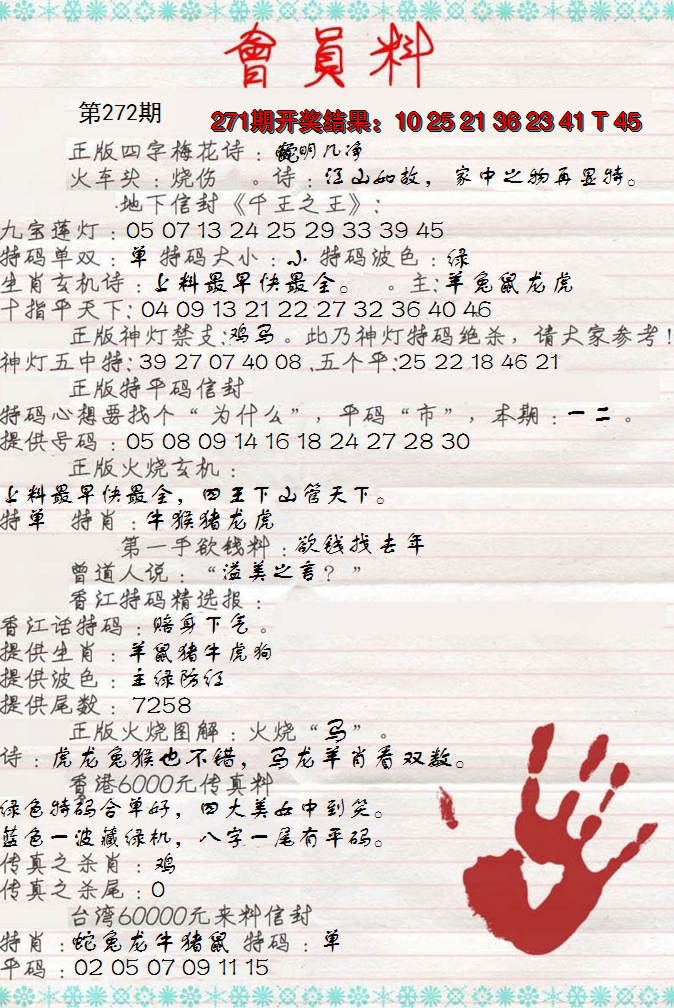 會員料
第272期
271期开奖结果：10 25 21 36 23 41 T 45
正版四字梅花诗：窗明几净
火车头：烧伤 。诗：江山如故，家中之物再显特。
地下信封《千王之王》：
九宝莲灯：05 07 13 24 25 29 33 39 45
特码单双：单 特码大小：小 特码波色：绿
生肖玄机诗：上料最早快最全。 。主：羊兔鼠龙虎
十指平天下：04 09 13 21 22 27 32 36 40 46
正版神灯禁支：鸡马。此乃神灯特码绝杀，请大家参考！
神灯五中特：39 27 07 40 08 .五个平：25 22 18 46 21
正版特平码信封
特码心想要找个“为什么”，平码“市”，本期：一二。
提供号码：05 08 09 14 16 18 24 27 28 30
正版火烧玄机：
上料最早快最全，四王下山管天下。
特单 特肖：牛猴猪龙虎
第一手欲钱料：欲钱找去年
曾道人说：“溢美之言？”
香江特码精选报：
香江话特码：赔身下气。
提供生肖：羊鼠猪牛虎狗
提供波色：主绿防红
提供尾数：7258
正版火烧图解：火烧“马”。
诗：虎龙兔猴也不错，马龙羊肖看双数。
香港6000元传真料
绿色特码合单好，四大美女中到笑。
蓝色一波藏绿机，八字一尾有平码。
传真之杀肖：鸡
传真之杀尾：0
台湾60000元来料信封
特肖：蛇兔龙牛猪鼠 特码：单
平码：02 05 07 09 11 15